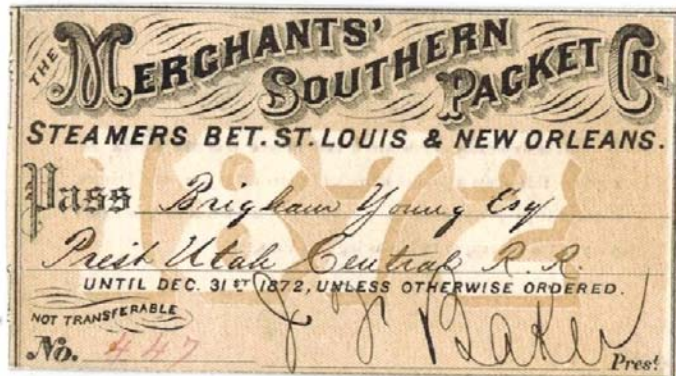 THE MERCHANTS'
SOUTHERN
PACKET CO.
STEAMERS BET. ST. LOUIS & NEW ORLEANS.
1872
Pass Brigham Young Esq
Prest Utah Central R. R.
UNTIL DEC. 31ST 1872, UNLESS OTHERWISE ORDERED.
NOT TRANSFERABLE
No. 447
J F Baker
Prest.